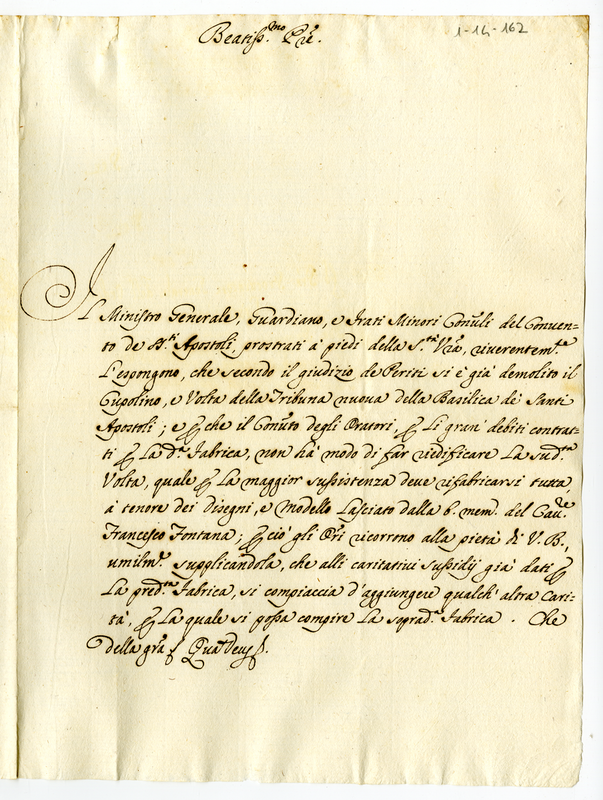 Beatiss.mo Pre.
1-14-162
Il Ministro Generale, Guardiano, e Frati Minori Con̄uli del Conven-
to de SS.ti Apostoli, prostrati à piedi della S.tà V̄ra, riverentem.te
L'espongono, che secondo il giudizio de Periti si è già demolito il
Cupolino, e Volta della Tribuna nuova della Basilica de' Santi
Apostoli; e ꝑche il Con̄uto degli Oratori, ꝑ li gran' debiti contrat-
ti ꝑ La d.a Fabrica, non hà modo di far riedificare La sud.ta
Volta, quale ꝑ La maggior sussistenza deve rifabricarsi tutta,
à tenore dei Disegni, e Modello Lasciato dalla b. mem. del Cav.re
Francesco Fontana; ꝑciò gli Ōri ricorrono alla pietà di V. B.,
umilm.e supplicandola, che alli caritativi sussidij già dati ꝑ
La pred.ta Fabrica, si compiaccia d'aggiungere qualch' altra Cari-
tà, ꝑ La quale si possa compire La soprad.a Fabrica. Che
della gr̄a &c. Quā Deus &c.